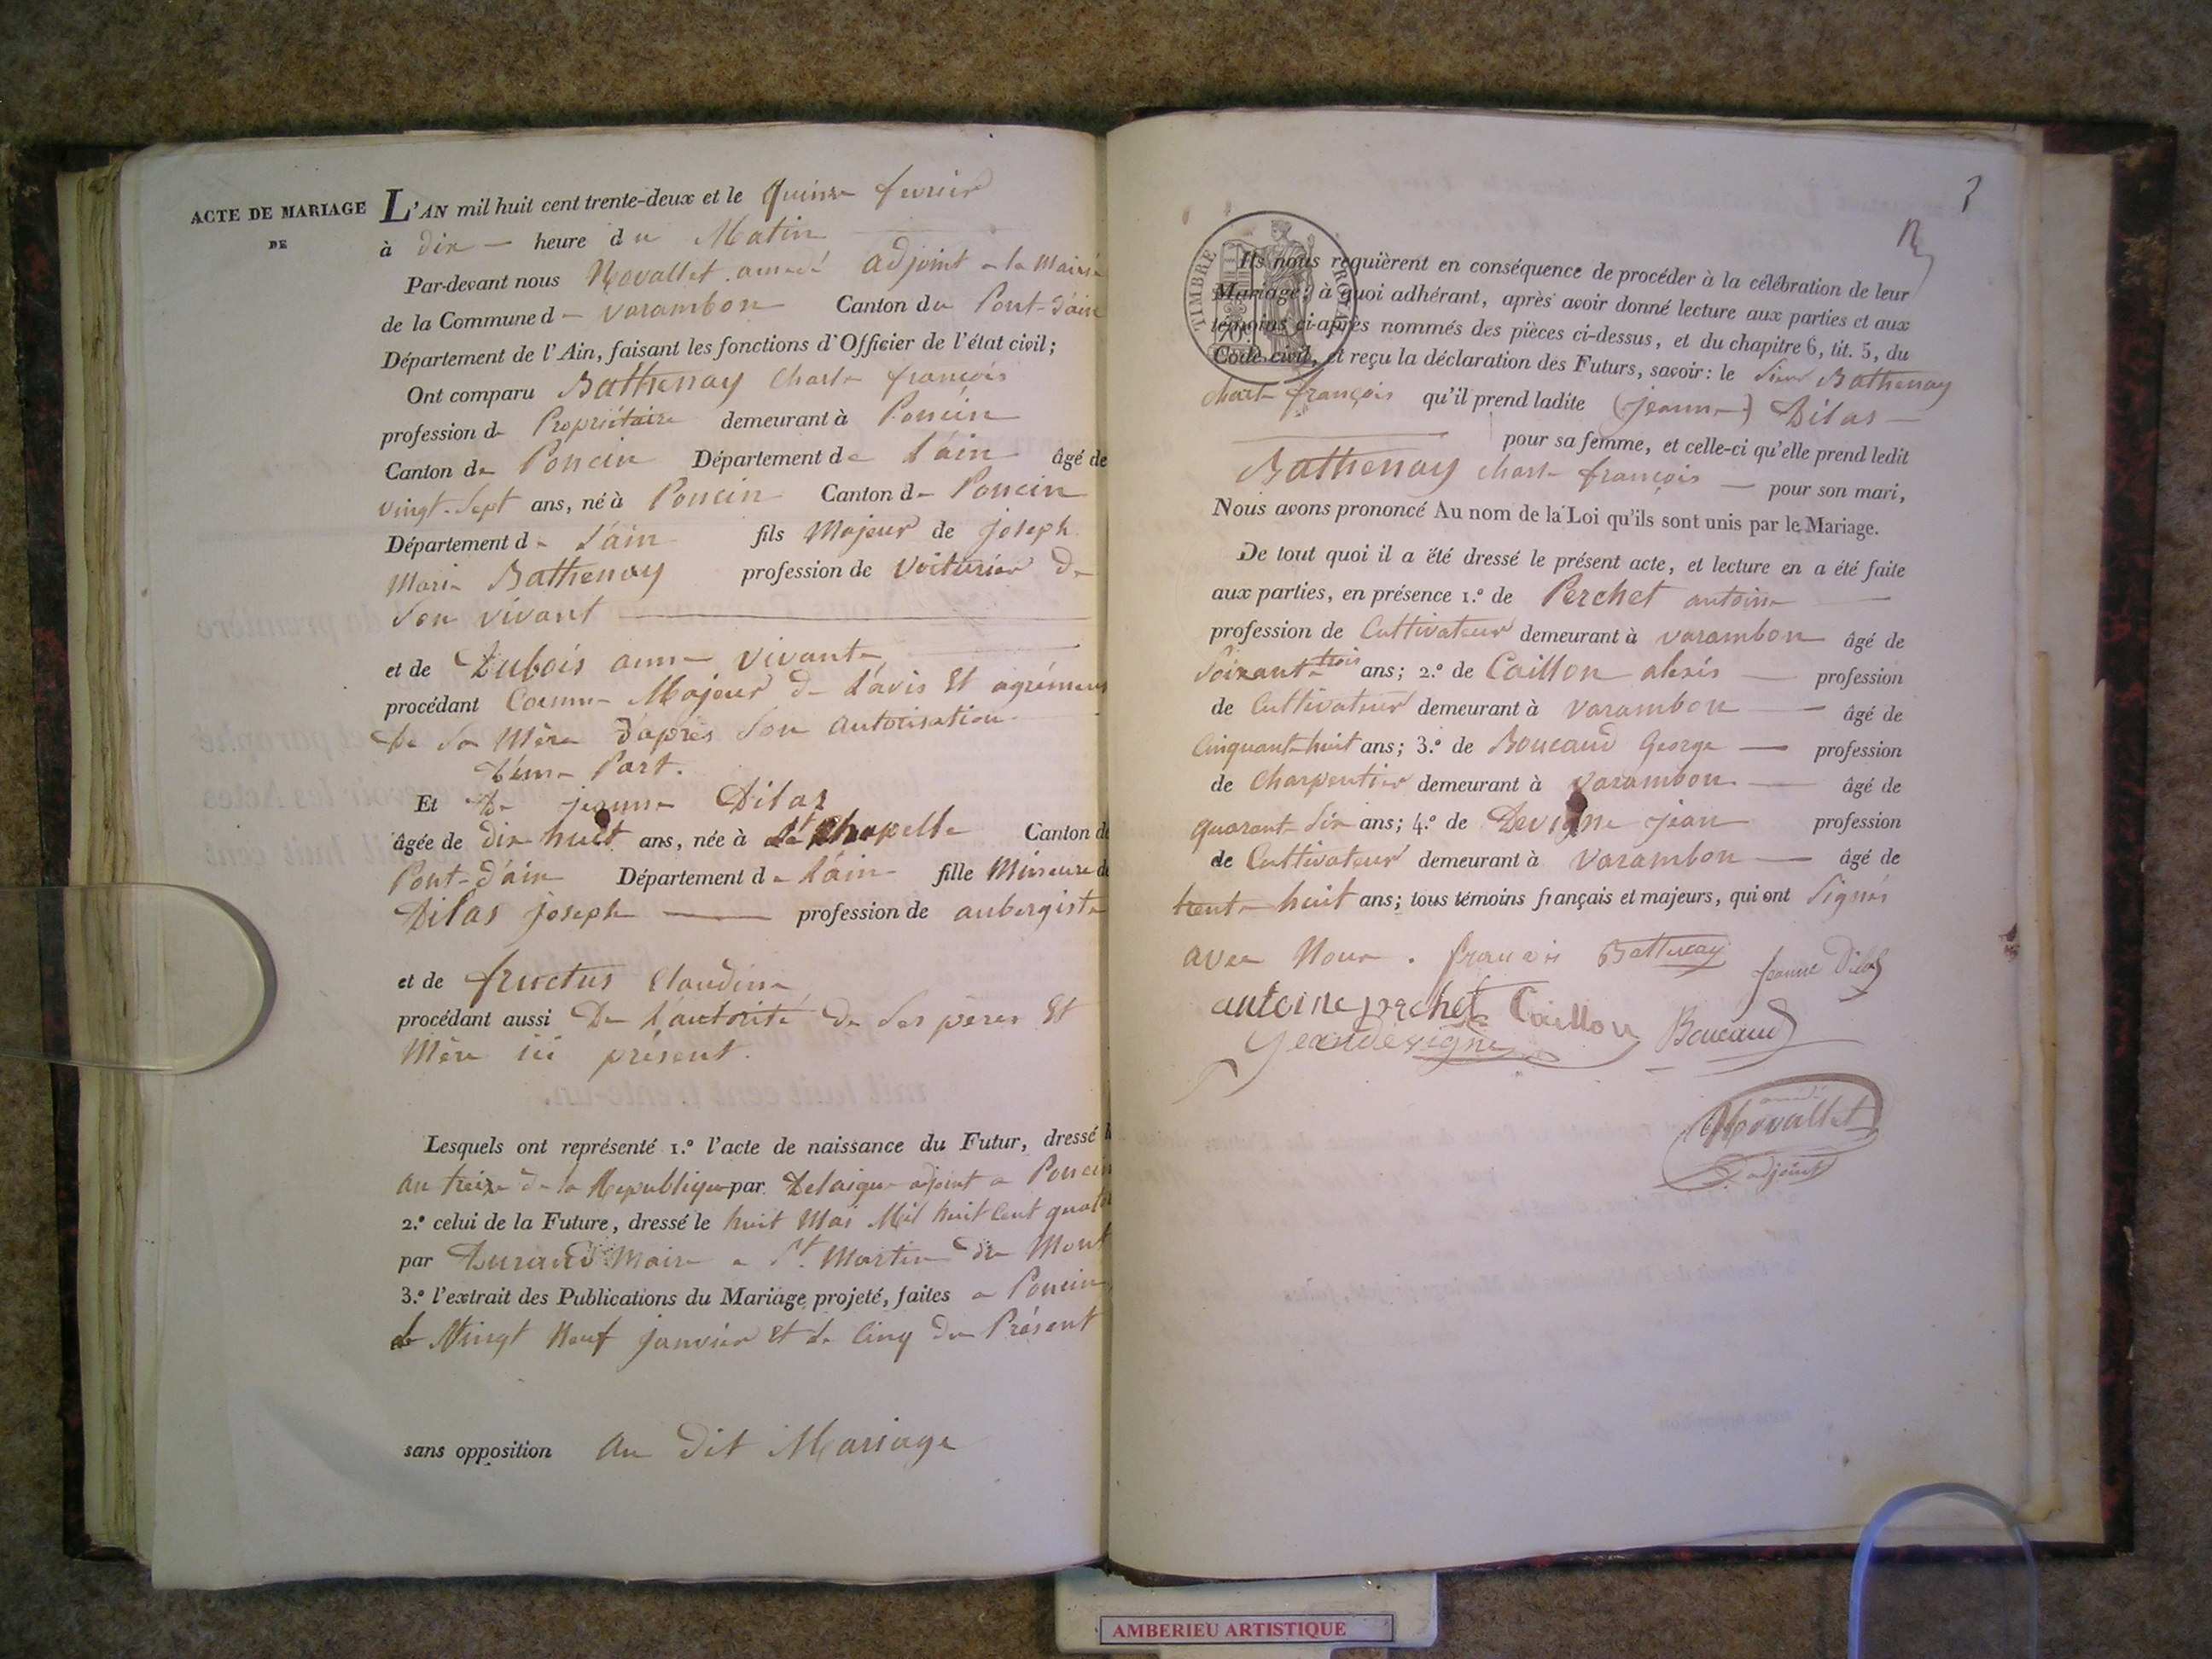 ACTE DE MARIAGE
DE
L'AN mil huit cent trente-deux et le quinze fevrier
à dix — heure du Matin
Par-devant nous Novallet amedé adjoint a la Mairie
de la Commune de Varambon Canton du Pont-d'ain
Département de l'Ain, faisant les fonctions d'Officier de l'état civil;
Ont comparu Bathenay Charle françois
profession de Propriétaire demeurant à Poncin
Canton de Poncin Département de L'ain âgé de
vingt-sept ans, né à Poncin Canton de Poncin
Département de L'ain fils Majeur de joseph
Marie Bathenay profession de Voiturier de
Son vivant
et de Dubois anne vivante
procédant Comme Majeur de L'avis Et agrément
De Sa Mère d'après Son autorisation
D'une Part.
Et De jeanne Dilas
âgée de dix huit ans, née à La Chapelle Canton de
Pont-d'ain Département de L'ain fille Mineure de
Dilas joseph — profession de aubergiste
et de fructus Claudine
procédant aussi De L'autorité de Ses pères Et
Mère ici présent.
Lesquels ont représenté 1.º l'acte de naissance du Futur, dressé l
an treize de la Republique par Delaigue adjoint a Poncin
2.º celui de la Future, dressé le huit Mai Mil huit Cent quator
par Durand Maire a St. Martin du Mont
3.º l'extrait des Publications du Mariage projeté, faites a Poncin
le Vingt Neuf janvier Et le Cinq du Présent
sans opposition au Dit Mariage
TIMBRE ROYAL
Ils nous requièrent en conséquence de procéder à la célébration de leur
Mariage; à quoi adhérant, après avoir donné lecture aux parties et aux
témoins ci-après nommés des pièces ci-dessus, et du chapitre 6, tit. 5, du
Code civil, et reçu la déclaration des Futurs, savoir: le Sieur Bathenay
Charle françois qu'il prend ladite (jeanne) Dilas —
pour sa femme, et celle-ci qu'elle prend ledit
Bathenay Charle françois — pour son mari,
Nous avons prononcé Au nom de la Loi qu'ils sont unis par le Mariage.
De tout quoi il a été dressé le présent acte, et lecture en a été faite
aux parties, en présence 1.º de Perchet antoine
profession de Cultivateur demeurant à varambon âgé de
Soixante trois ans; 2.º de Caillon alexis — profession
de Cultivateur demeurant à varambon — âgé de
Cinquante huit ans; 3.º de Boucaud George — profession
de Charpentier demeurant à Varambon — âgé de
quarante Six ans; 4.º de Devigne jean profession
de Cultivateur demeurant à Varambon — âgé de
trente huit ans; tous témoins français et majeurs, qui ont Signés
avec Nous. françois Bathenay Jeanne Dilas
antoine perchet Caillon Boucaud
Jean devigne
Novallet
adjoint
AMBERIEU ARTISTIQUE